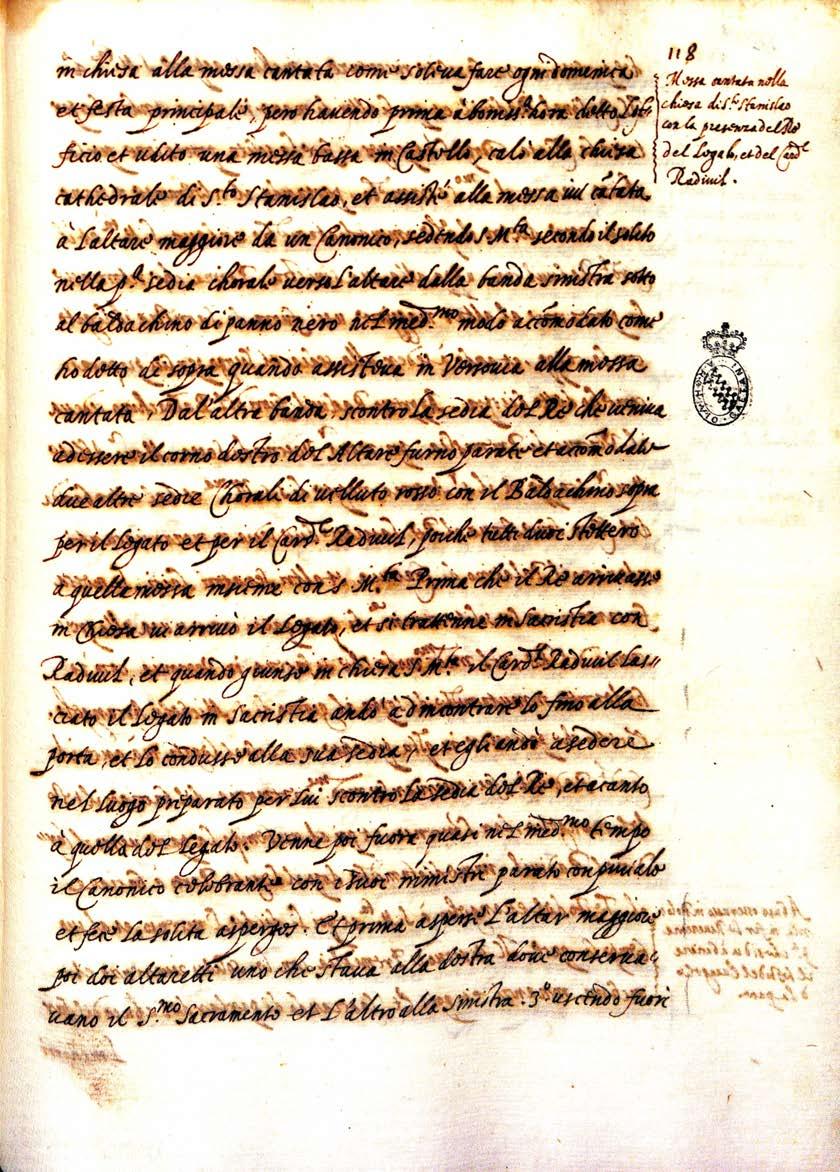 118
in chiesa alla messa cantata come soleva fare ogni domenica
et festa principale, però havendo prima à boniss.ª hora detto l'of=
ficio et udito una messa bassa in Castello, calò alla chiesa
cathedrale di S.to Stanislao, et assisté alla messa ivi cãtata
à L'altare maggiore da un Canonico, sedendo S M.ta secondo il solito
nella p.ª sedia chorale verso L'altare dalla banda sinistra sotto
al baldachino di panno nero nel med.mo modo accõmodato come
ho detto di sopra quando assisteva in Varsovia alla messa
cantata. Dal'altra banda scontro la sedia del Re che veniva
ad essere il corno destro del Altare furno parate et accõmodate
due altre sedie Chorali di velluto rosso con il Baldachino sopra
per il Legato et per il Card.le Radivil, poiche tutti duoi stettero
a quella messa insieme con S M.ta Prima che il Re arrivasse
in Chiesa vi arrivò il Legato, et si trattenne in Sacristia con
Radivil, et quando giunse in chiesa S M.ta il Card.le Radivil las=
ciato il Legato in Sacristia andò ad incontrarelo fino alla
porta, et lo condusse alla sua sedia, et egli andò a sedere
nel luogo preparato per lui scontro la sedia del Re, et acanto
à quella del Legato. Venne poi fuora quasi nel med.mo tempo
il Canonico celebrante con i suoi ministri parato con piviale
et fece la solita asperges. Et prima asperse L'altar maggiore
poi doi altaretti uno che stava alla destra dove conserva=
vano il S.mo Sacramento et L'altro alla sinistra. 3.º uscendo fuori
Messa cantata nella
chiesa di S.to Stanislao
con la presenza del Re
del Legato, et del Card.le
Radivil.